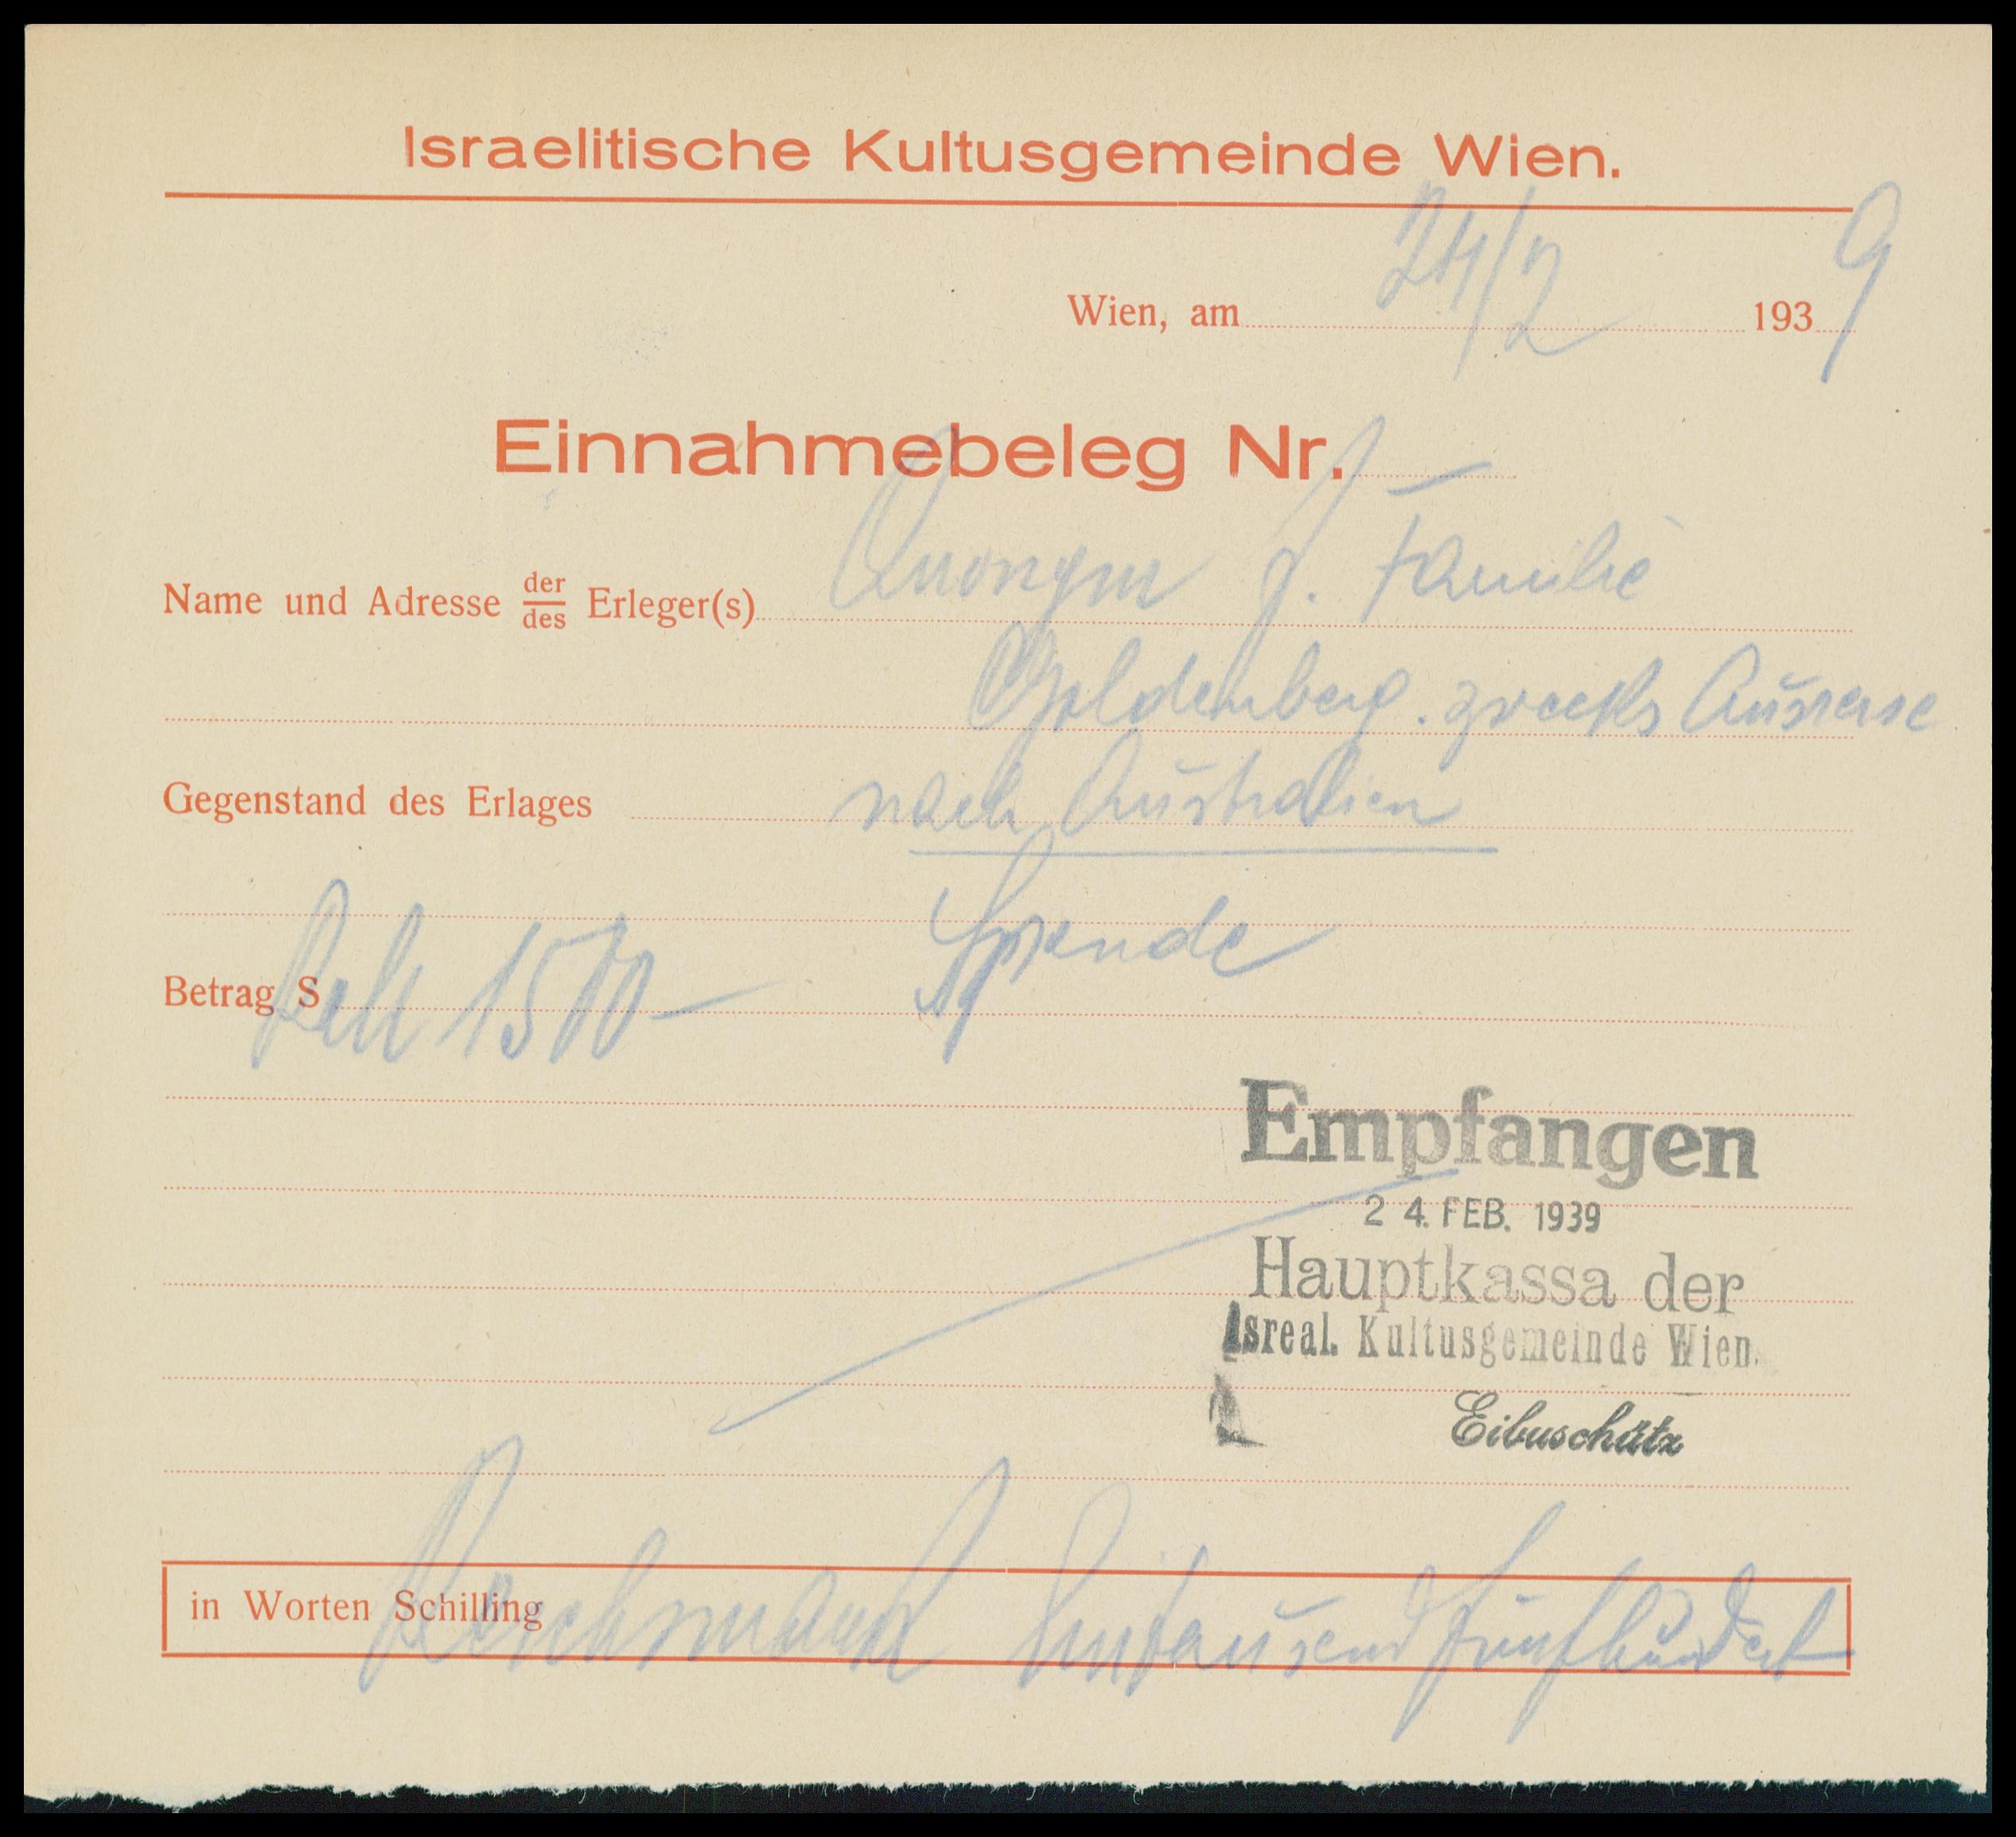 Israelitische Kultusgemeinde Wien.
Wien, am 24/2 1939
Einnahmebeleg Nr. —
Name und Adresse der/des Erleger(s) Anonym f. Familie
Goldenberg. zwecks Ausreise
Gegenstand des Erlages nach Australien
Spende
Betrag S 1500 —
Empfangen
24. FEB. 1939
Hauptkassa der
Isreal. Kultusgemeinde Wien.
Eibuschütz
in Worten Schilling Reichsmark Eintausendfünfhundert